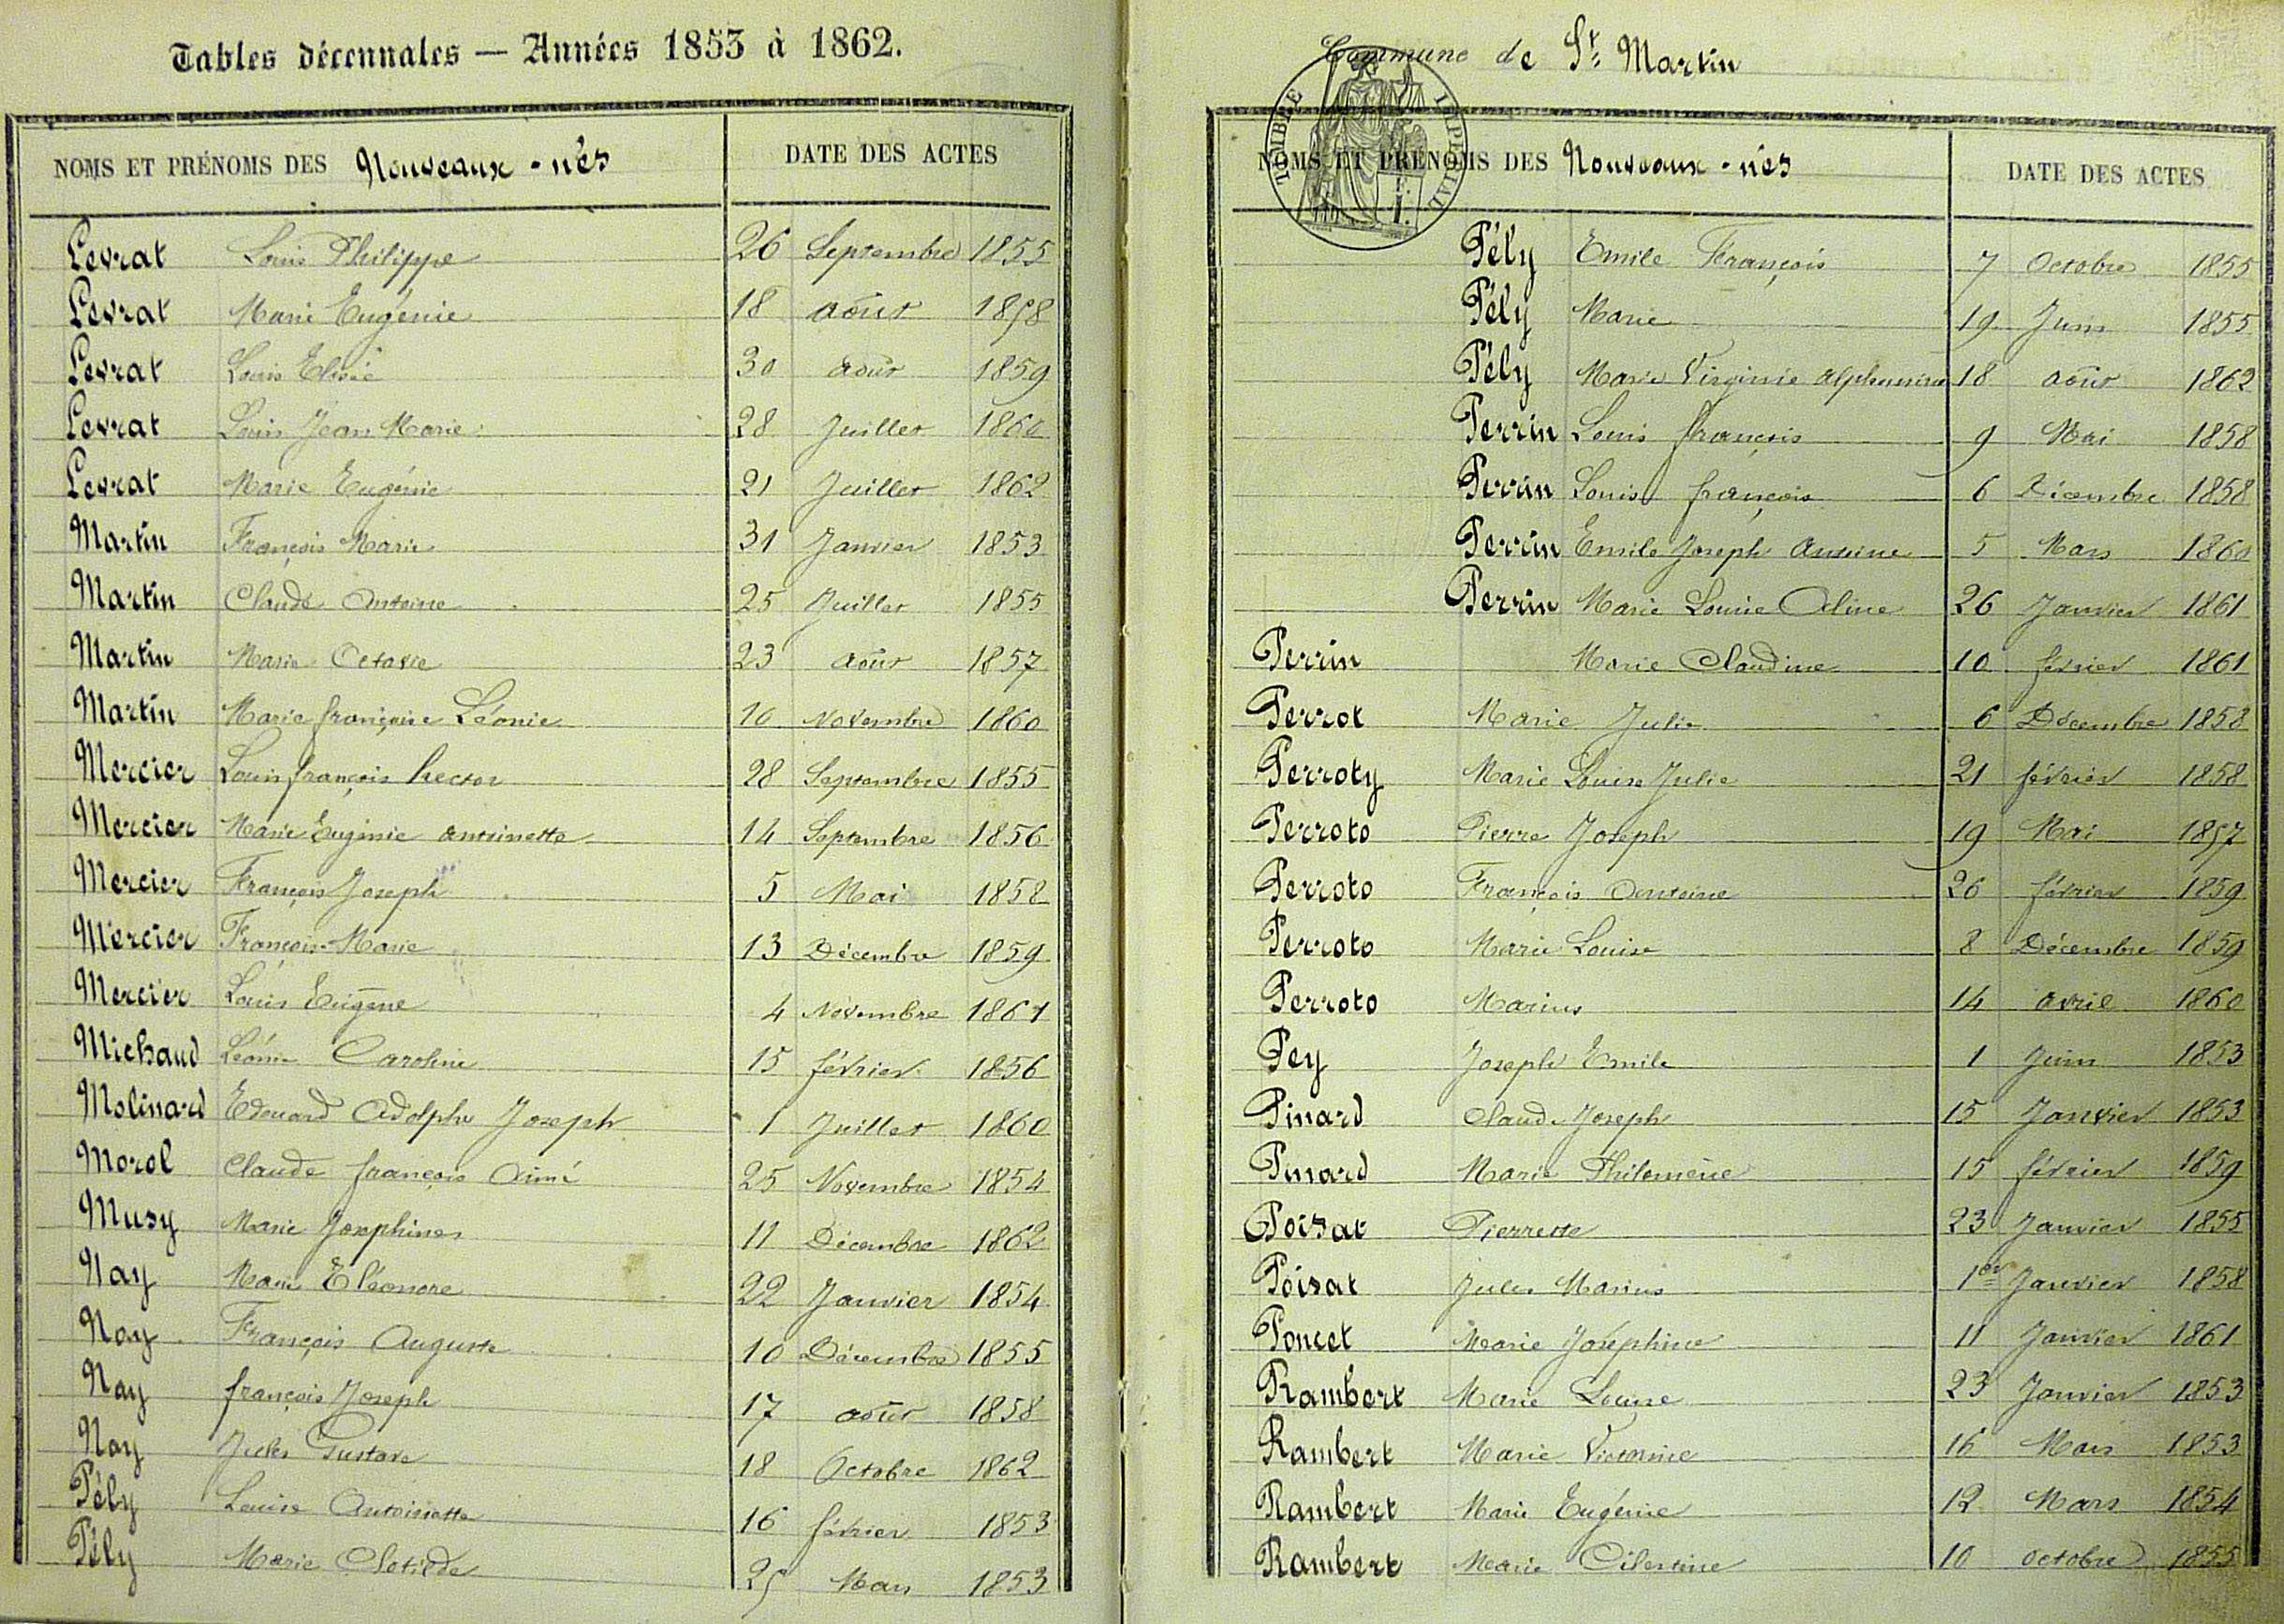 Tables décennales — Années 1853 à 1862.
NOMS ET PRÉNOMS DES Nouveaux-nés DATE DES ACTES
Levrat Louis Philippe 26 Septembre 1855
Levrat Marie Eugénie 18 août 1858
Levrat Louis Elisée 30 août 1859
Levrat Louis Jean Marie 28 Juillet 1860
Levrat Marie Eugénie 21 Juillet 1862
Martin François Marie 31 Janvier 1853
Martin Claude Antoine 25 Juillet 1855
Martin Marie Octavie 23 août 1857
Martin Marie françoise Léonie 10 Novembre 1860
Mercier Louis françois hector 28 Septembre 1855
Mercier Marie Eugénie antoinette 14 Septembre 1856
Mercier François Joseph 5 Mai 1858
Mercier François-Marie 13 Décembre 1859
Mercier Louis Eugène 4 Novembre 1861
Michaud Léonie Caroline 15 février 1856
Molinard Edouard Adolphe Joseph 1 Juillet 1860
Morel Claude françois Aimé 25 Novembre 1854
Musy Marie Josephine 11 Décembre 1862
Nay Marie Eléonore 22 Janvier 1854
Nay François Auguste 10 Décembre 1855
Nay françois Joseph 17 août 1858
Nay Jules Gustave 18 Octobre 1862
Pély Louise Antoinette 16 février 1853
Pély Marie Clotilde 25 Mars 1853
Commune de St. Martin
TIMBRE IMPÉRIAL
NOMS ET PRÉNOMS DES Nouveaux-nés DATE DES ACTES
Pély Emile François 7 Octobre 1855
Pély Marie 19 Juin 1855
Pély Marie Virginie alphonsine 18 août 1862
Perrin Louis françois 9 Mai 1858
Perrin Louis françois 6 Décembre 1858
Perrin Emile Joseph Antoine 5 Mars 1860
Perrin Marie Louise Celine 26 Janvier 1861
Perrin Marie Claudine 10 février 1861
Perrot Marie Julie 6 Décembre 1858
Perroty Marie Louise Julie 21 février 1858
Perroto Pierre Joseph 19 Mai 1857
Perroto François Antoine 26 février 1859
Perroto Marie Louise 8 Décembre 1859
Perroto Marius 14 avril 1860
Pey Joseph Emile 1 Juin 1853
Pinard Claude Joseph 15 Janvier 1853
Pinard Marie Philomène 15 février 1859
Poisat Pierrette 23 Janvier 1855
Poisat Jules Marius 1er Janvier 1858
Poncet Marie Joséphine 11 Janvier 1861
Rambert Marie Louise 23 Janvier 1853
Rambert Marie Victorine 16 Mars 1853
Rambert Marie Eugénie 12 Mars 1854
Rambert Marie Célestine 10 octobre 1855